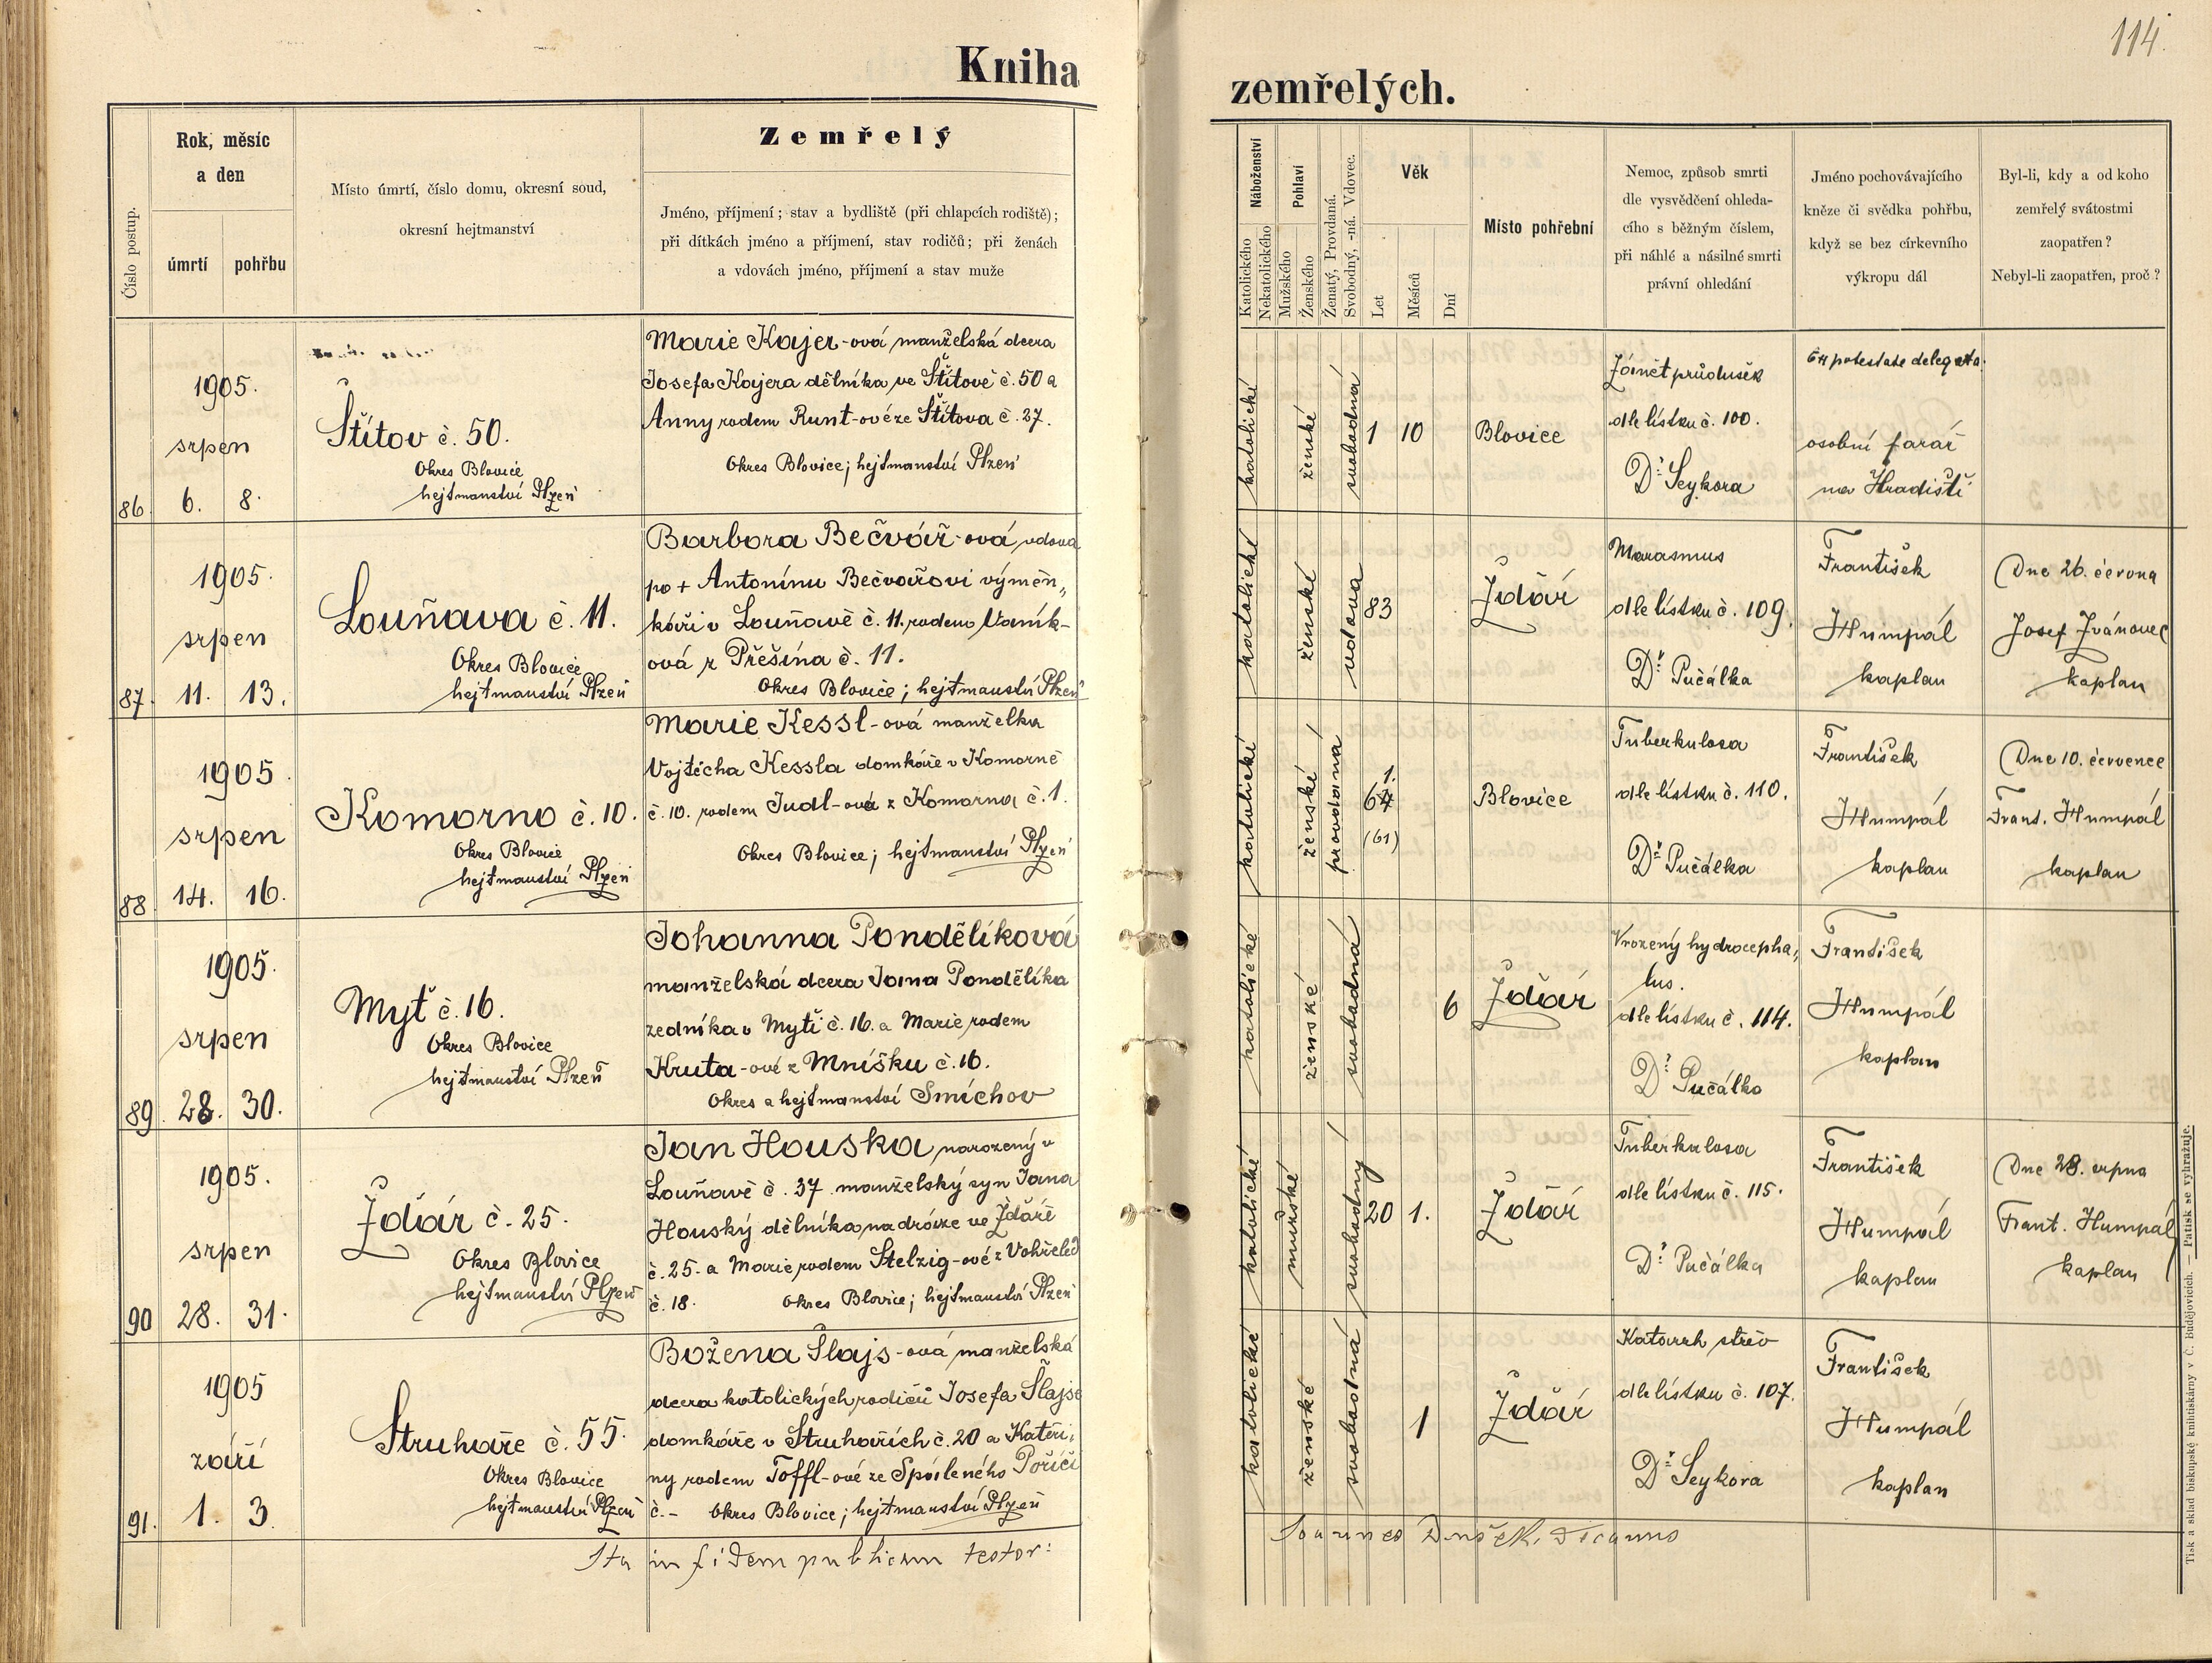 114.
Kniha
zemřelých.
Číslo postup.
Rok, měsíc
a den
úmrtí
pohřbu
Místo úmrtí, číslo domu, okresní soud,
okresní hejtmanství
Zemřelý
Jméno, příjmení; stav a bydliště (při chlapcích rodiště);
při dítkách jméno a příjmení, stav rodičů; při ženách
a vdovách jméno, příjmení a stav muže
Náboženství
Katolického
Nekatolického
Pohlaví
Mužského
Ženského
Ženatý, Provdaná.
Svobodný, -ná. Vdovec.
Věk
Let
Měsíců
Dní
Místo pohřební
Nemoc, způsob smrti
dle vysvědčení ohleda-
cího s běžným číslem,
při náhlé a násilné smrti
právní ohledání
Jméno pochovávajícího
kněze či svědka pohřbu,
když se bez církevního
výkropu dál
Byl-li, kdy a od koho
zemřelý svátostmi
zaopatřen?
Nebyl-li zaopatřen, proč?
86.
1905.
srpen
6. 8.
Štítov č. 50.
Okres Blovice
hejtmanství Plzeň
Marie Kajer-ová manželská dcera
Josefa Kajera dělníka ve Štítově č. 50 a
Anny rodem Runt-ové ze Štítova č. 27.
Okres Blovice; hejtmanství Plzeň
katolické
ženské
svobodná
1 10
Blovice
Zánět průdušek
dle lístku č. 100.
Dr. Seykora
Ex potestate delegata:
osobní farář
na Hradišti
87.
1905.
srpen
11. 13.
Louňava č. 11.
Okres Blovice
hejtmanství Plzeň
Barbora Bečvář-ová vdova
po + Antonínu Bečvářovi výměn„
káři v Louňavě č. 11. rodem Vaník-
ová z Přešína č. 11.
Okres Blovice; hejtmanství Plzeň
katolické
ženské
vdova
83
Ždár
Marasmus
dle lístku č. 109.
Dr. Pučálka
František
Humpál
kaplan
Dne 26. června
Josef Ivánovec
kaplan
88.
1905.
srpen
14. 16.
Komorno č. 10.
Okres Blovice
hejtmanství Plzeň
Marie Kessl-ová manželka
Vojtěcha Kessla domkáře v Komorně
č. 10. rodem Judl-ová z Komorna č. 1.
Okres Blovice; hejtmanství Plzeň
katolické
ženské
provdaná
1.
(61)
Blovice
Tuberkulosa
dle lístku č. 110.
Dr. Pučálka
František
Humpál
kaplan
Dne 10. července
Frant. Humpál
kaplan
89.
1905.
srpen
28. 30.
Myť č. 16.
Okres Blovice
hejtmanství Plzeň
Johanna Pondělíková
manželská dcera Jana Pondělíka
zedníka v Myti č. 16. a Marie rodem
Kruta-ové z Mníšku č. 16.
Okres a hejtmanství Smíchov
katolické
ženské
svobodná
6
Ždár
Vrozený hydrocepha„
lus.
dle lístku č. 114.
Dr. Pučálka
František
Humpál
kaplan
90
1905.
srpen
28. 31.
Ždár č. 25.
Okres Blovice
hejtmanství Plzeň
Jan Houska narozený v
Louňavě č. 37. manželský syn Jana
Houský dělníka na dráze ve Ždáře
č. 25. a Marie rodem Stelzig-ové z Vohřeled
č. 18. Okres Blovice; hejtmanství Plzeň
katolické
mužské
svobodný
20 1.
Ždár
Tuberkulosa
dle lístku č. 115.
Dr. Pučálka
František
Humpál
kaplan
Dne 28. srpna
Frant. Humpál
kaplan
91.
1905
září
1. 3.
Struhaře č. 55.
Okres Blovice
hejtmanství Plzeň
Božena Šlajs-ová manželská
dcera katolických rodičů Josefa Šlajse
domkáře v Struhařích č. 20 a Kateři„
ny rodem Toffl-ové ze Spáleného Poříčí
č.- Okres Blovice; hejtmanství Plzeň
katolické
ženské
svobodná
1
Ždár
Katarrh střev
dle lístku č. 107.
Dr. Seykora
František
Humpál
kaplan
Ita in fidem publicam testor:
Joannes Decanus
Tisk a sklad biskupské knihtiskárny v Č. Budějovicích. — Patisk se vyhražuje.